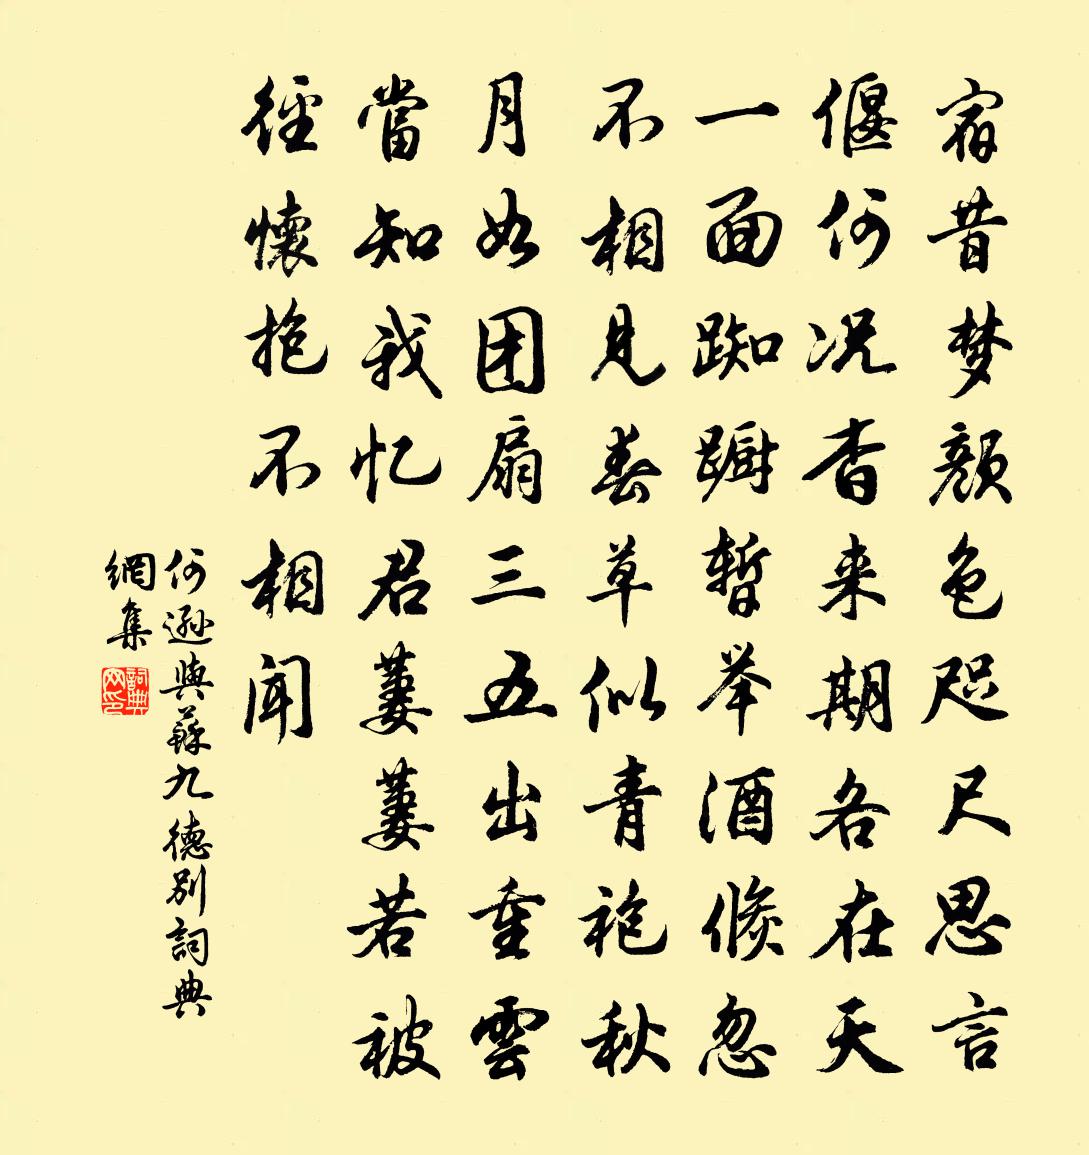 宿昔梦颜色咫尺思言
偃何况杳来期各在天
一面踟蹰暫举酒倏忽
不相見春草似青袍秋
月如团扇三五出重雲
當知我忆君萋萋若被
徑懷抱不相闻
何遜與蘇九德别詞典
網集
詞典網印